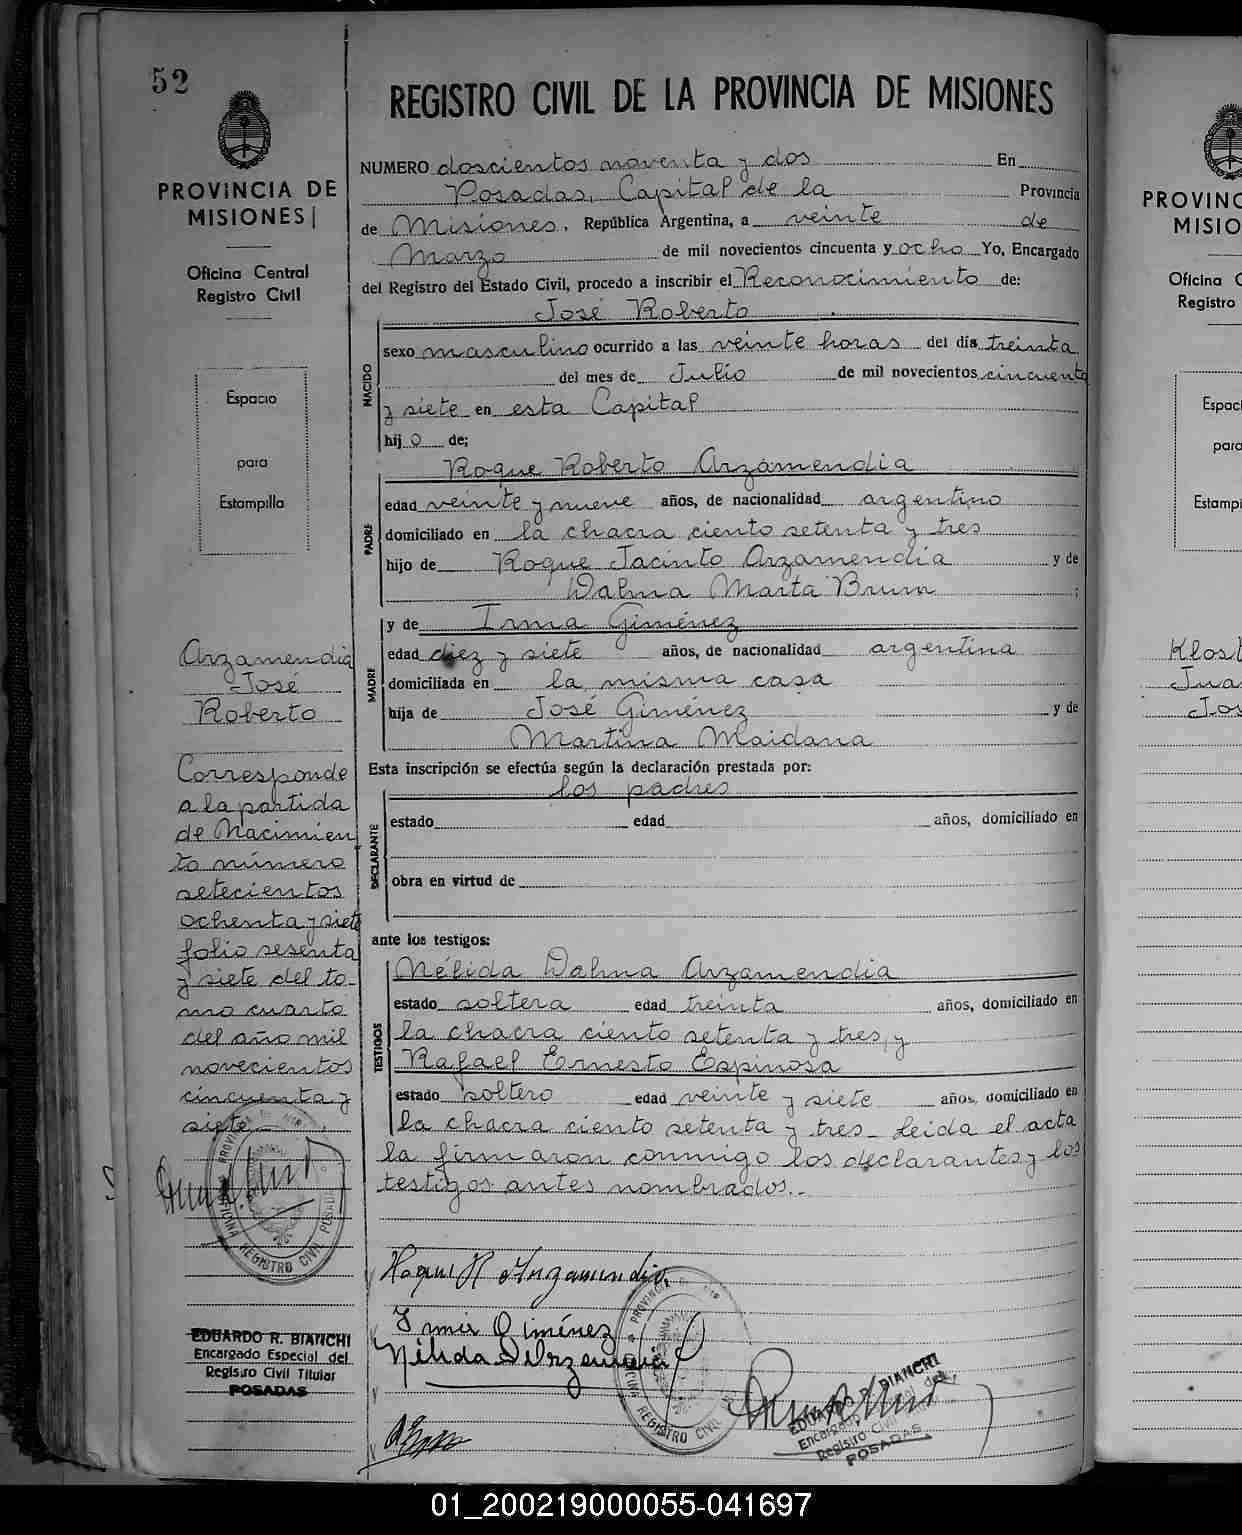 52
PROVINCIA DE
MISIONES
Oficina Central
Registro Civil
Espacio
para
Estampilla
Arzamendia
José
Roberto
Corresponde
a la partida
de Nacimien
to número
setecientos
ochenta y siete
folio sesenta
y siete del to-
mo cuarto
del año mil
novecientos
cincuenta y
siete.-
OFICINA REGISTRO CIVIL POSADAS
EDUARDO R. BIANCHI
Encargado Especial del
Registro Civil Titular
POSADAS
REGISTRO CIVIL DE LA PROVINCIA DE MISIONES
NUMERO doscientos noventa y dos En
Posadas, Capital de la Provincia
de Misiones, República Argentina, a veinte de
Marzo de mil novecientos cincuenta y ocho Yo, Encargado
del Registro del Estado Civil, procedo a inscribir el Reconocimiento de:
José Roberto
NACIDO
sexo masculino ocurrido a las veinte horas del día treinta
del mes de Julio de mil novecientos cincuenta
y siete en esta Capital
hijo de;
Roque Roberto Arzamendia
PADRE
edad veinte y nueve años, de nacionalidad argentino
domiciliado en la chacra ciento setenta y tres
hijo de Roque Jacinto Arzamendia y de
Dalma Marta Brum;
y de Irma Giménez
MADRE
edad diez y siete años, de nacionalidad argentina
domiciliada en la misma casa
hija de José Giménez y de
Martina Maidana
Esta inscripción se efectúa según la declaración prestada por:
los padres
DECLARANTE
estado edad años, domiciliado en
obra en virtud de
ante los testigos:
Nélida Dalma Arzamendia
TESTIGOS
estado soltera edad treinta años, domiciliado en
la chacra ciento setenta y tres, y
Rafael Ernesto Espinosa
estado soltero edad veinte y siete años, domiciliado en
la chacra ciento setenta y tres- Leida el acta
la firmaron conmigo los declarantes y los
testigos antes nombrados.-
Roque R Arzamendia
Irma Giménez
Nélida D Arzamendia
OFICINA REGISTRO CIVIL
EDUARDO R. BIANCHI
Encargado Especial del
Registro Civil Titular
POSADAS
PROVINC
MISIO
Oficina C
Registro
Espaci
para
Estampi
Klost
Jua
Jos
01_200219000055-041697